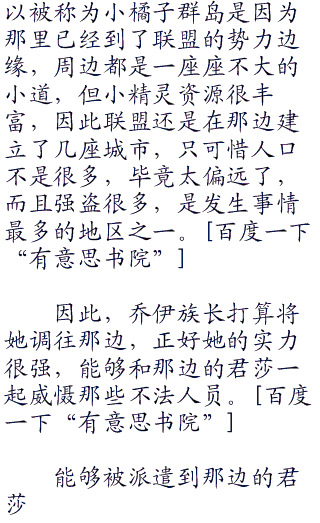 以被称为小橘子群岛是因为
那里已经到了联盟的势力边
缘，周边都是一座座不大的
小道，但小精灵资源很丰
富，因此联盟还是在那边建
立了几座城市，只可惜人口
不是很多，毕竟太偏远了，
而且强盗很多，是发生事情
最多的地区之一。[百度一下
“有意思书院”]
因此，乔伊族长打算将
她调往那边，正好她的实力
很强，能够和那边的君莎一
起威慑那些不法人员。[百度
一下“有意思书院”]
能够被派遣到那边的君
莎